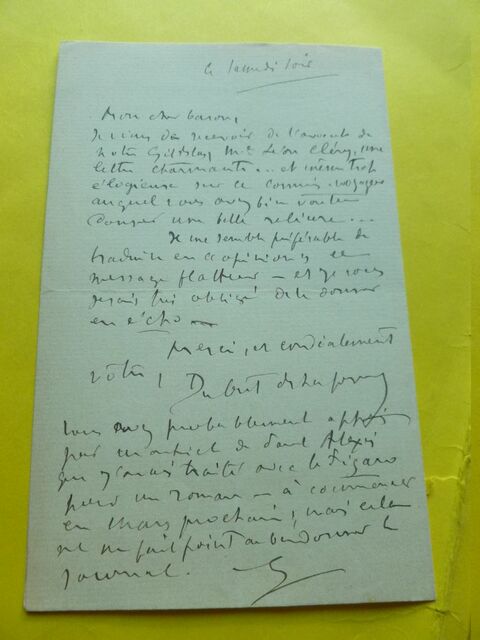 ce samedi soir
Mon cher baron,
Je viens de recevoir de l'avocat de
notre Me Léon Cléry, une
lettre charmante... et même trop
élogieuse sur ce commis-voyageur
auquel vous avez bien voulu
donner une belle reliure...
Il me semble préférable de
traduire en ce
message flatteur — et je vous
serais très obligé de le donner
en écho —
Merci, et cordialement
votre,
Vous avez probablement appris
par un article de Paul Alexis
que j'avais traité avec le Figaro
pour un roman — à commencer
en Mars prochain, mais cela
ne me fait point abandonner le
journal.